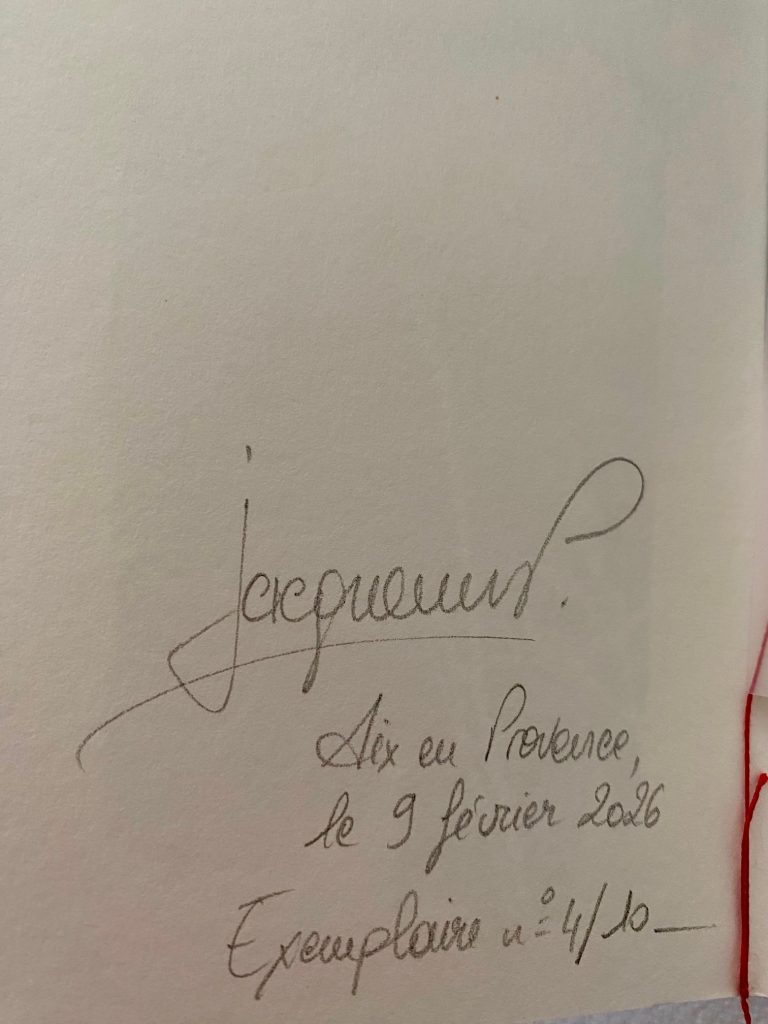 Jacquemus P.
Aix en Provence,
le 9 février 2026
Exemplaire n° 4/10